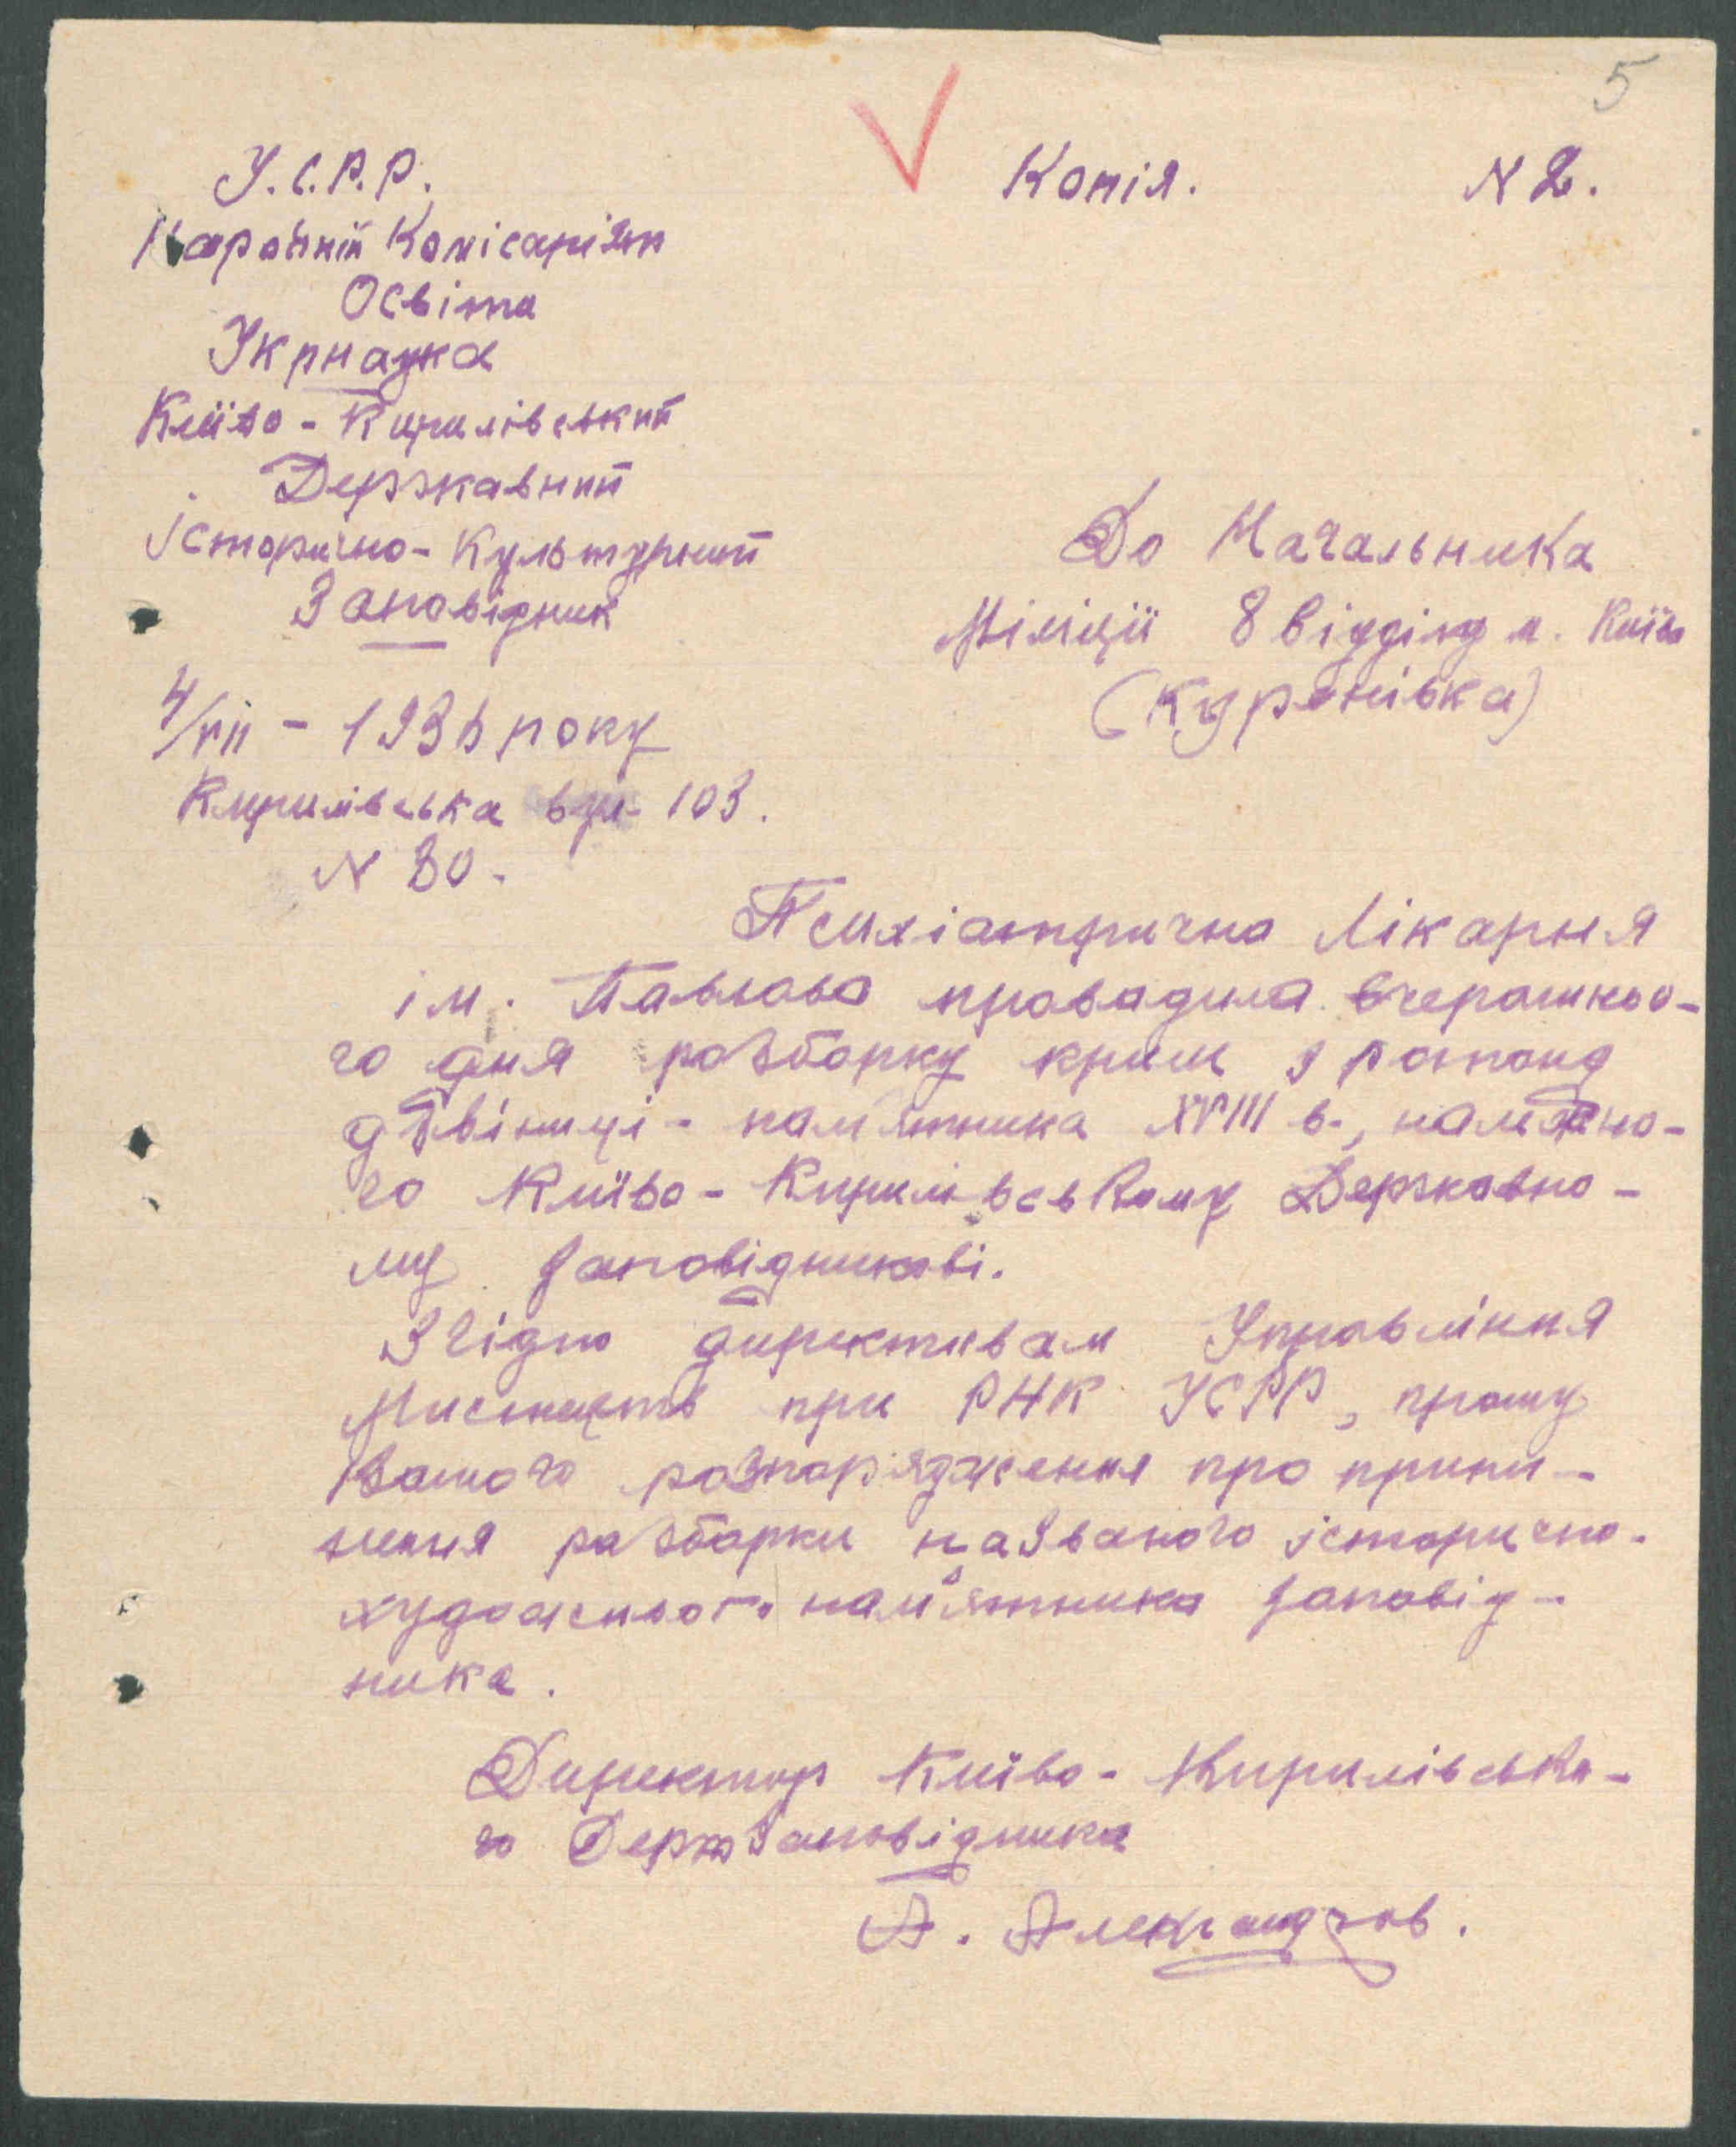 5
У.С.Р.Р.
Народній Комісаріят
Освіти
Укрнаука
Київо-Кирилівський
Державний
історично-Культурний
Заповідник
4/VII - 1936 року
Кирилівська вул. 103.
N 80.
Копія. N 2.
До Начальника
Міліції 8 відділу м. Київ
(Куренівка)
Психіатрична Лікарня
ім. Павлова провадила вчерашньо-
го дня розборку криши з
дзвіниці - пам'ятника XVIII в.,
го Київо-Кирилівському Державно-
му заповідникові.
Згідно директивам Управління
Мистецтв при РНК УСРР, прошу
Вашого розпорядження про припи-
нення разборки названого історично-
художнього пам'ятника заповід-
ника.
Директор Київо-Кирилівсько-
го Держзаповідника
А. Александров.